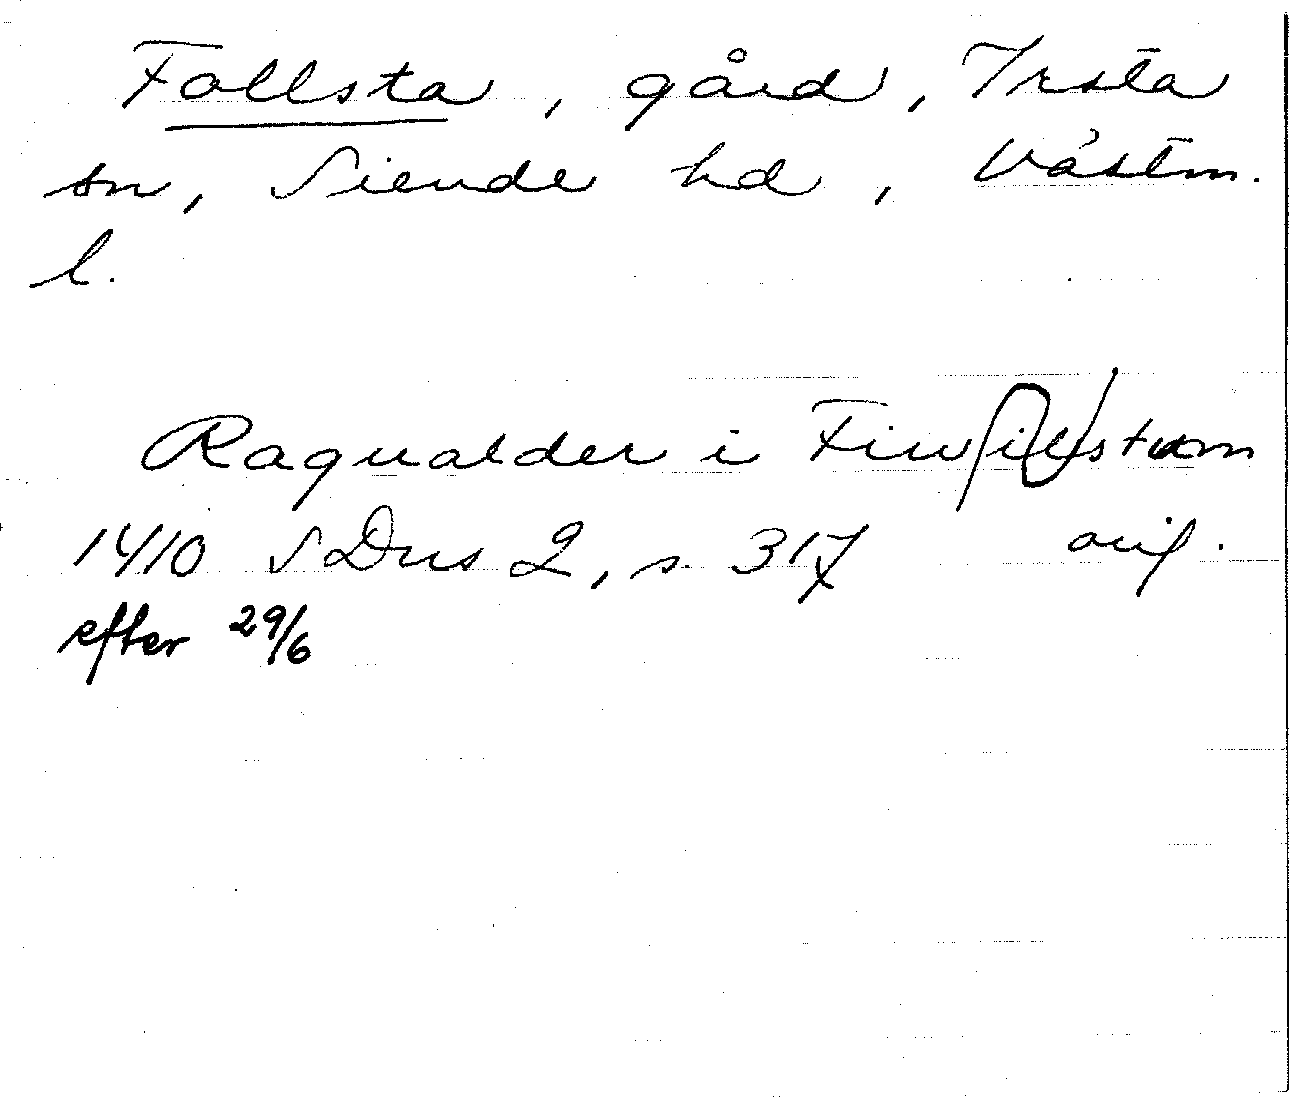 Follsta, gård, Irsta
sn, Siende hd, Västm.
l.
Ragualder i
1410 SDns 2, s. 317 orig.
efter 29/6